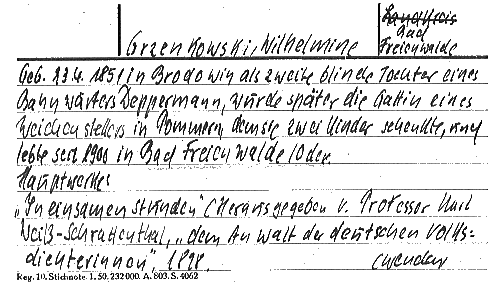 Grzenkowski, Wilhelmine
Landkreis
Bad
Freienwalde
Geb. 23.4.1851 in Brodowin als zweite blinde Tochter eines
Bahnwärters Deppermann, wurde später die Gattin eines
Weichenstellers in Pommern, dem sie zwei Kinder schenkte, und
lebte seit 1906 in Bad Freienwalde/Oder.
Hauptwerke:
„In einsamen Stunden" (Herausgegeben v. Professor Karl
Weiß-Schrattenthal, „dem Anwalt der deutschen Volks-
dichterinnen", 1898.
(wenden
Reg. 10. Stichnote. 1. 50. 232000. A. 803. S. 4062